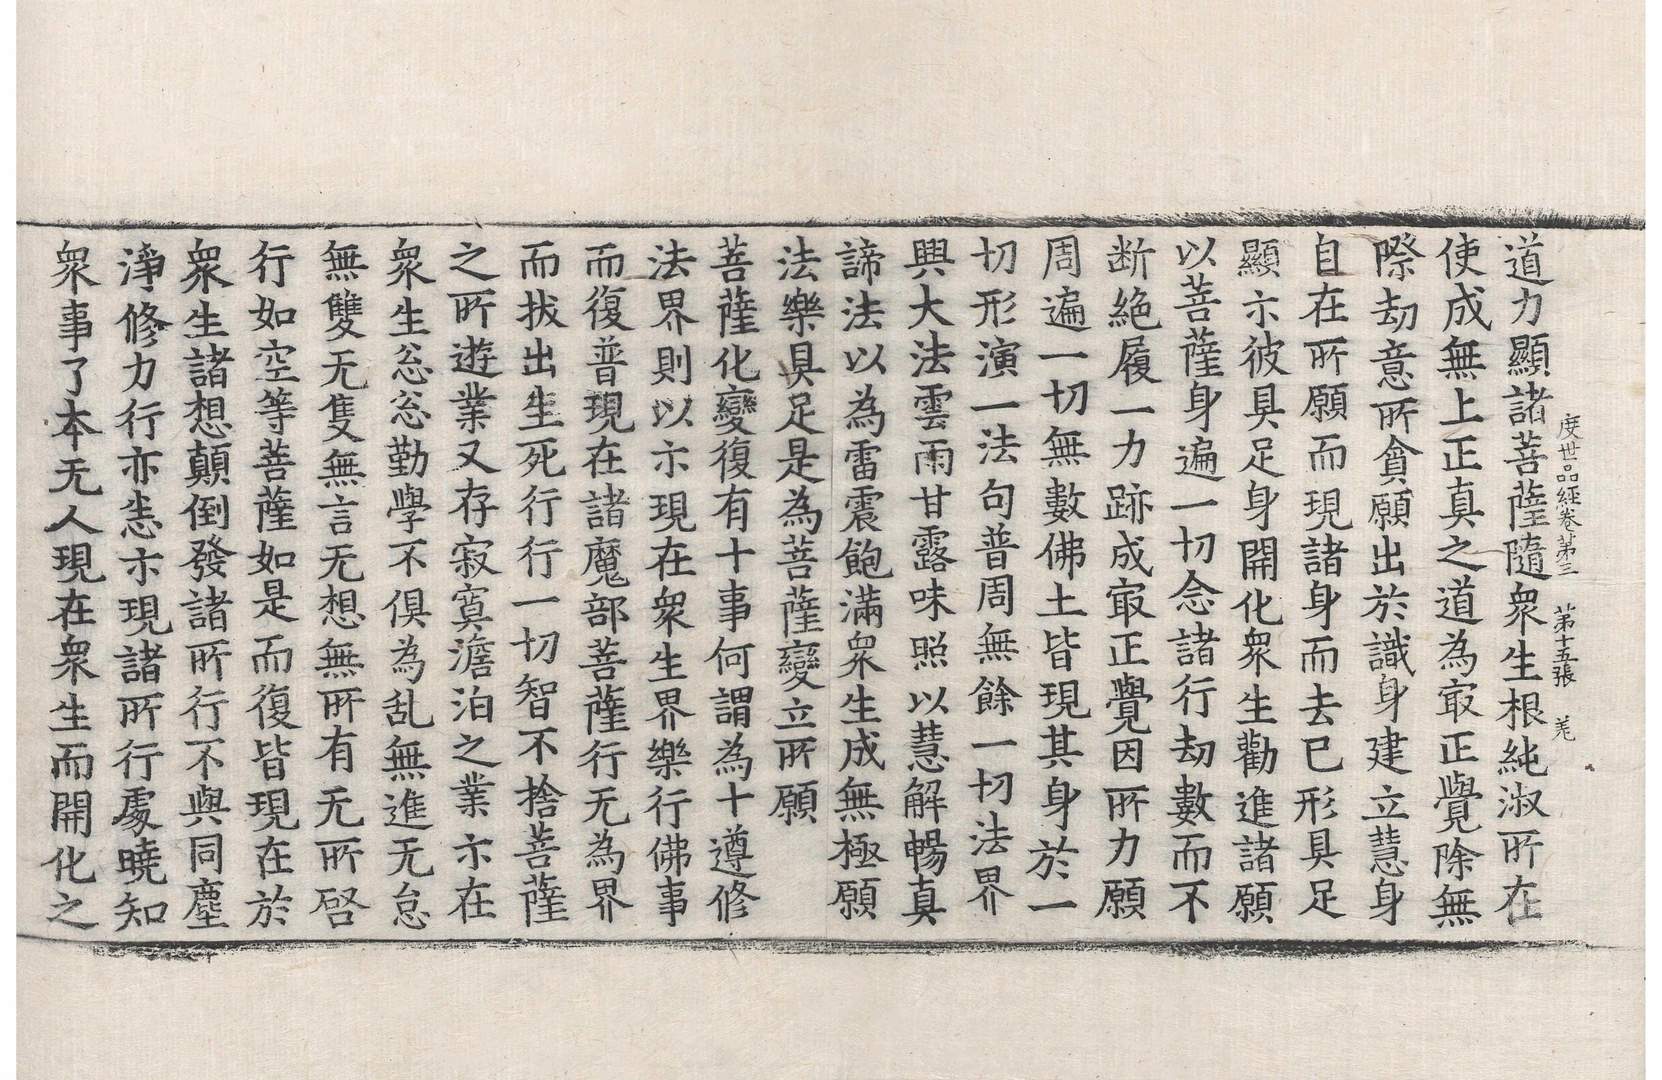 度世品經卷第三　第十五張　羌
道力顯諸菩薩隨衆生根純淑所在
使成無上正真之道為㝡正覺除無
際劫意所貪願出於識身建立慧身
自在所願而現諸身而去已形具足
顯示彼具足身開化衆生勸進諸願
以菩薩身遍一切念諸行劫數而不
断絶履一力跡成㝡正覺因所力願
周遍一切無數佛土皆現其身於一
切形演一法句普周無餘一切法界
興大法雲雨甘露味照以慧解暢真
諦法以為雷震飽滿衆生成無極願
法樂具足是為菩薩變立所願
菩薩化變復有十事何謂為十遵修
法界則以示現在衆生界樂行佛事
而復普現在諸魔部菩薩行无為界
而拔出生死行行一切智不捨菩薩
之所遊業又存寂寞澹泊之業示在
衆生忩忩勤學不俱為乱無進无怠
無雙无隻無言无想無所有无所啓
行如空等菩薩如是而復皆現在於
衆生諸想顛倒發諸所行不與同塵
淨修力行亦恙示現諸所行處曉知
衆事了本无人現在衆生而開化之